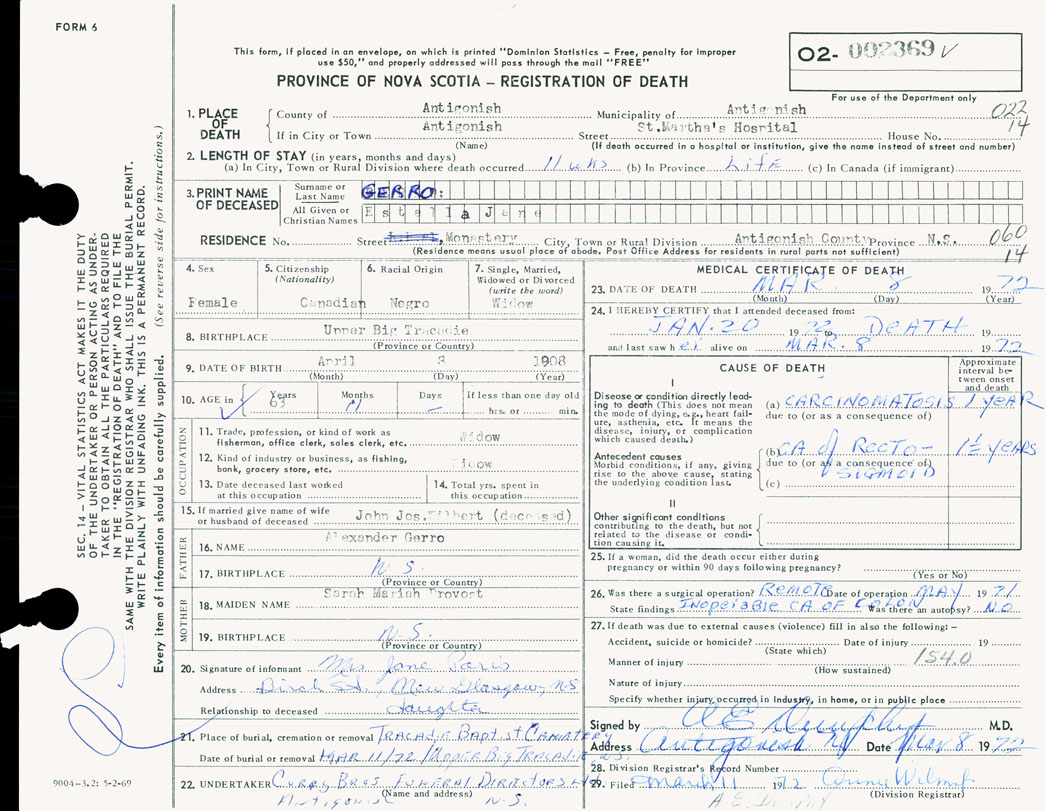 FORM 6
This form, if placed in an envelope, on which is printed "Dominion Statistics – Free, penalty for improper
use $50," and properly addressed will pass through the mail "FREE"
PROVINCE OF NOVA SCOTIA – REGISTRATION OF DEATH
02- 002369 ✓
For use of the Department only
022
14
1. PLACE OF DEATH
County of Antigonish Municipality of Antigonish
If in City or Town Antigonish Street St.Martha's Hosrital House No.
(Name) (If death occurred in a hospital or institution, give the name instead of street and number)
2. LENGTH OF STAY (in years, months and days)
(a) In City, Town or Rural Division where death occurred 11 wks (b) In Province Life (c) In Canada (if immigrant)
3. PRINT NAME OF DECEASED
Surname or Last Name GERRO:
All Given or Christian Names Estella Jane
RESIDENCE No. Street , Monastery City, Town or Rural Division Antigonish County Province N.S.
(Residence means usual place of abode. Post Office Address for residents in rural parts not sufficient)
060
14
4. Sex Female
5. Citizenship (Nationality) Canadian
6. Racial Origin Negro
7. Single, Married, Widowed or Divorced (write the word) Widow
8. BIRTHPLACE Upper Big Tracadie
(Province or Country)
9. DATE OF BIRTH April 8 1908
(Month) (Day) (Year)
10. AGE in Years 63 Months 11 Days – If less than one day old hrs. or min.
OCCUPATION
11. Trade, profession, or kind of work as fisherman, office clerk, sales clerk, etc. Widow
12. Kind of industry or business, as fishing, bank, grocery store, etc. Widow
13. Date deceased last worked at this occupation
14. Total yrs. spent in this occupation
15. If married give name of wife or husband of deceased John Jos.Wilbert (deceased)
FATHER
16. NAME Alexander Gerro
17. BIRTHPLACE N.S.
(Province or Country)
MOTHER
18. MAIDEN NAME Sarah Mariah Provost
19. BIRTHPLACE N.S.
(Province or Country)
20. Signature of informant Mrs Jane Paris
Address Birch St., New Glasgow, N.S
Relationship to deceased daughter
21. Place of burial, cremation or removal TRACADIE BAPTIST CEMETERY
Date of burial or removal MAR 11/72 /Upper Big TRACADIE N.S.
22. UNDERTAKER Curry Bros. FUNERAL DIRECTORS Ltd
(Name and address)
Antigonish N.S.
MEDICAL CERTIFICATE OF DEATH
23. DATE OF DEATH MAR. 8 1972
(Month) (Day) (Year)
24. I HEREBY CERTIFY that I attended deceased from:
JAN. 20 1972 to DEATH 19
and last saw her alive on MAR. 8 1972
CAUSE OF DEATH
Approximate interval between onset and death
I
Disease or condition directly leading to death (This does not mean the mode of dying, e.g., heart failure, asthenia, etc. It means the disease, injury, or complication which caused death.)
(a) CARCINOMATOSIS 1 YEAR
due to (or as a consequence of)
Antecedent causes
Morbid conditions, if any, giving rise to the above cause, stating the underlying condition last.
(b) CA of RECTO- 1½ YEARS
due to (or as a consequence of)
SIGMOID
(c)
II
Other significant conditions
contributing to the death, but not related to the disease or condition causing it.
25. If a woman, did the death occur either during pregnancy or within 90 days following pregnancy?
(Yes or No)
26. Was there a surgical operation? REMOTE Date of operation MAY 1971
State findings INOPERABLE CA OF COLON Was there an autopsy? NO
27. If death was due to external causes (violence) fill in also the following: –
Accident, suicide or homicide? Date of injury 19
(State which)
Manner of injury 154.0
(How sustained)
Nature of injury
Specify whether injury occurred in Industry, in home, or in public place
Signed by A E Dunphy M.D.
Address Antigonish NS Date Mar 8 1972
28. Division Registrar's Record Number
29. Filed March 11 1972 Annie Wilmot
(Division Registrar)
A E Dunphy
SEC. 14 – VITAL STATISTICS ACT MAKES IT THE DUTY
OF THE UNDERTAKER OR PERSON ACTING AS UNDER-
TAKER TO OBTAIN ALL THE PARTICULARS REQUIRED
IN THE "REGISTRATION OF DEATH" AND TO FILE THE
SAME WITH THE DIVISION REGISTRAR WHO SHALL ISSUE THE BURIAL PERMIT.
WRITE PLAINLY WITH UNFADING INK. THIS IS A PERMANENT RECORD.
Every item of information should be carefully supplied. (See reverse side for instructions.)
9004-3.2: 5-2-69